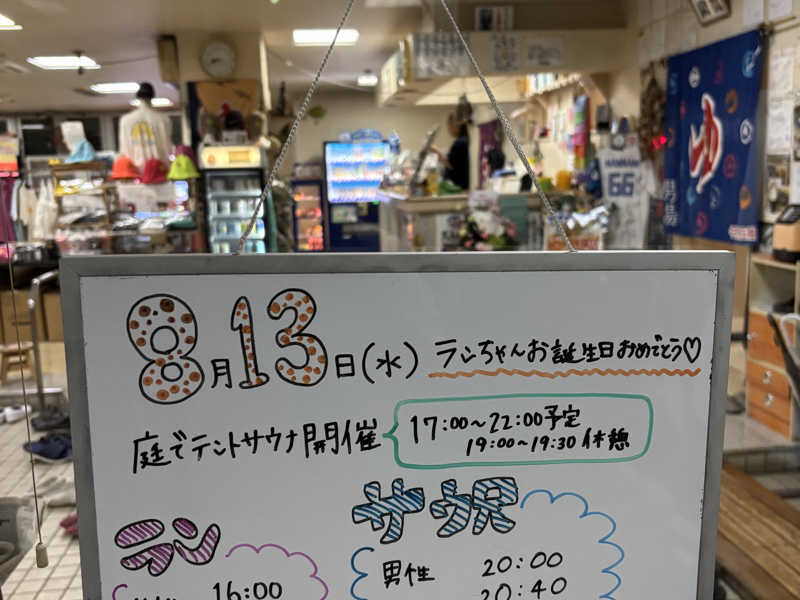 8月13日(水) ランちゃんお誕生日おめでとう♡
庭でテントサウナ開催 17:00〜22:00予定
19:00〜19:30 休憩
ラン
16:00
サウ尺
男性 20:00
20:40
ゆ
66